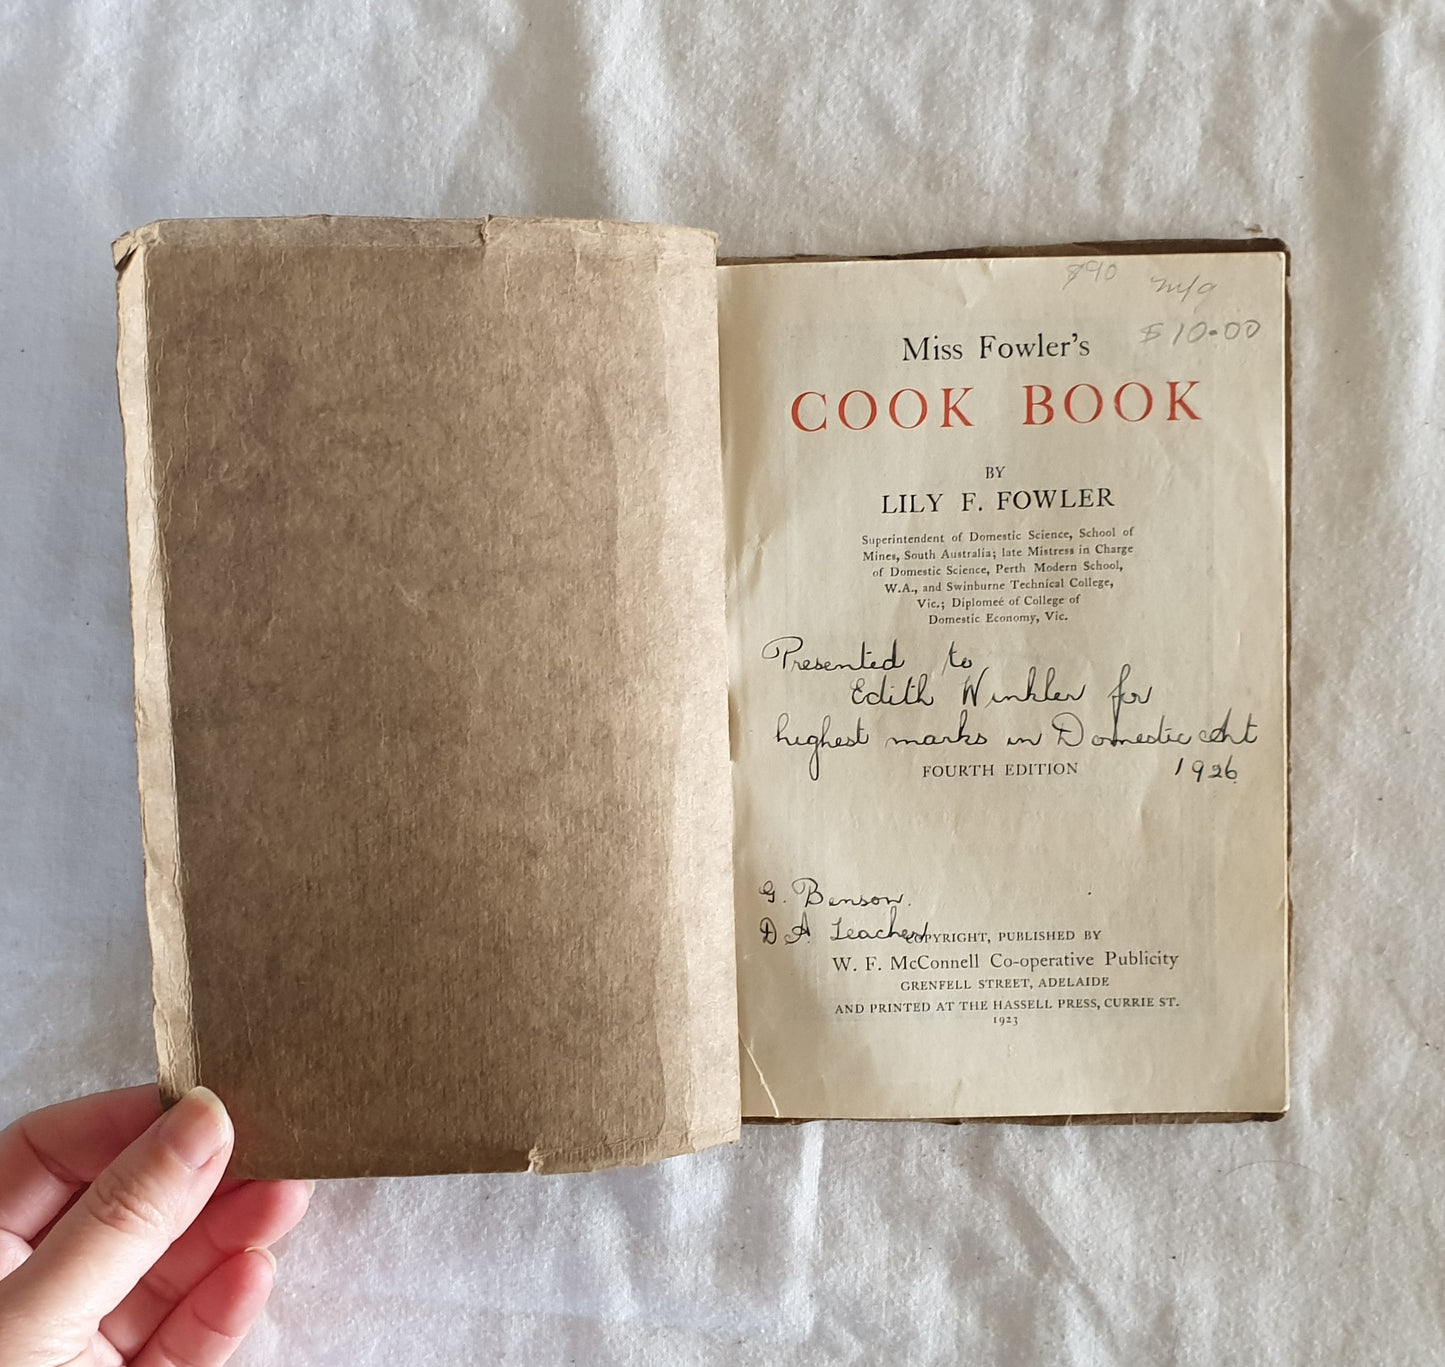 $90
m/a
$10.00
Miss Fowler's
COOK BOOK
BY
LILY F. FOWLER
Superintendent of Domestic Science, School of
Mines, South Australia; late Mistress in Charge
of Domestic Science, Perth Modern School,
W.A., and Swinburne Technical College,
Vic.; Diplomeé of College of
Domestic Economy, Vic.
Presented to
Edith Winkler for
highest marks in Domestic Art
FOURTH EDITION
1926.
G. Benson.
D A Teacher
COPYRIGHT, PUBLISHED BY
W. F. McConnell Co-operative Publicity
GRENFELL STREET, ADELAIDE
AND PRINTED AT THE HASSELL PRESS, CURRIE ST.
1923